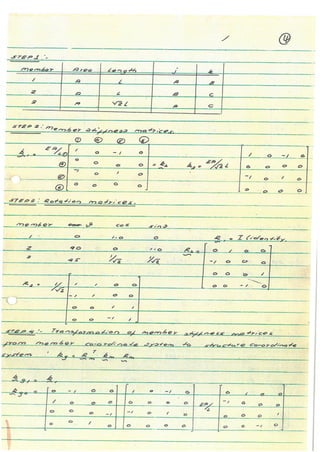 1 ④
STEP 1:-
member Area Length j k
1 A L A B
2 A L B C
3 A √2L A C
STEP 2: member stiffness matrices.
① ② ③ ④
k1 = EA/L [ 1 0 -1 0 = k2 k3 = EA/√2L [ 1 0 -1 0
0 0 0 0 0 0 0 0
-1 0 1 0 -1 0 1 0
0 0 0 0 ] 0 0 0 0 ]
STEP 3: Rotation matrices.
member θ cos sinθ
1 0 1.0 0 R1 = I (identity.
2 90 0 1.0 R2 = [ 0 1 0 0
3 45 1/√2 1/√2 -1 0 0 0
0 0 0 1
0 0 -1 0 ]
R3 = 1/√2 [ 1 1 0 0
-1 1 0 0
0 0 1 1
0 0 -1 1 ]
STEP 4:- Transformation of member stiffness matrices
from member coordinate system to structure coordinate
system : kg = RmT km Rm
kg1 = k1
kg2 = [ 0 -1 0 0 [ 1 0 -1 0 [ 0 1 0 0
1 0 0 0 0 0 0 0 EA/L -1 0 0 0
0 0 0 -1 -1 0 1 0 0 0 0 1
0 0 1 0 0 0 0 0 0 0 -1 0